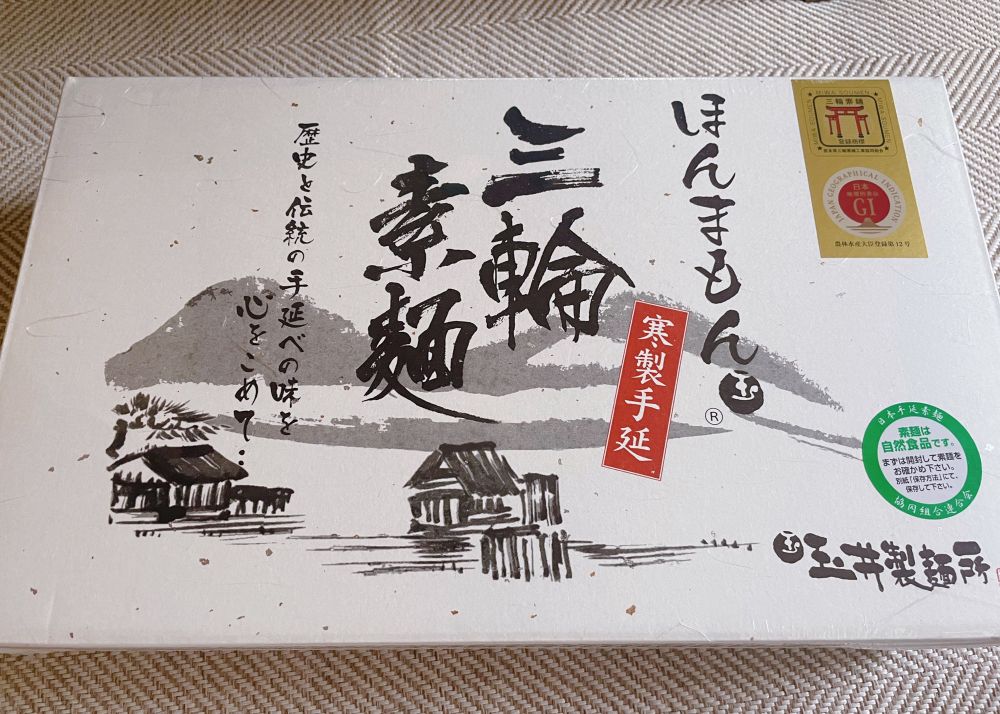 ほんまもん
®
三輪
素麺
寒製手延
歴史と伝統の手延べの味を
心をこめて…
MIWA SOUMEN
三輪素麺
登録商標
JAPAN GEOGRAPHICAL INDICATION
日本
地理的表示
GI
農林水産大臣登録第12号
日本手延素麺
素麺は
自然食品です。
まずは開封して素麺を
お確かめ下さい。
別紙「保存方法」にて、
保存して下さい。
協同組合連合会
玉井製麺所